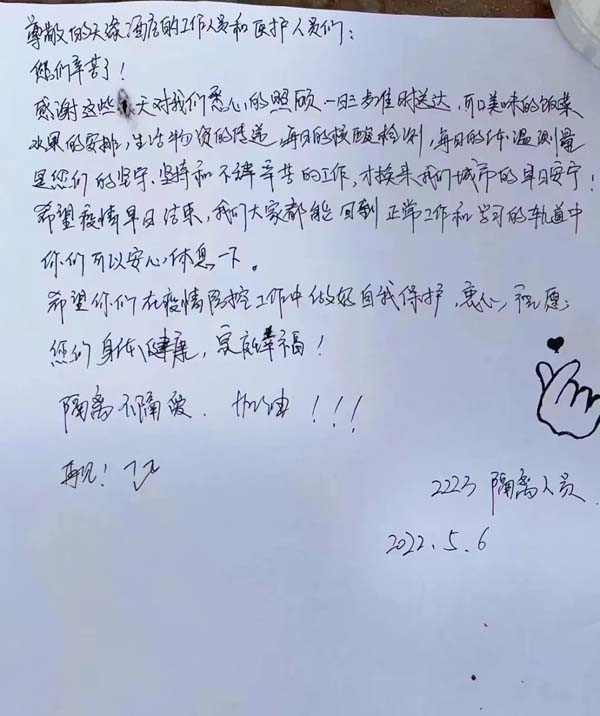 尊敬的天添酒店的工作人员和医护人员们:
您们辛苦了!
感谢这些天对我们悉心的照顾,一日三餐准时送达,可口美味的饭菜
水果的安排,生活物资的传递,每日的核酸检测,每日的体温测量
是您们的坚守、坚持和不谏辛苦的工作,才换来我们城市的早日安宁!
希望疫情早日结束,我们大家都能回到正常工作和学习的轨道中
你们可以安心休息一下。
希望你们在疫情防控工作中做好自我保护,衷心祝愿:
您们身体健康,家庭幸福!
隔离不隔爱.加油!!!
再见!
2223 隔离人员.
2022.5.6